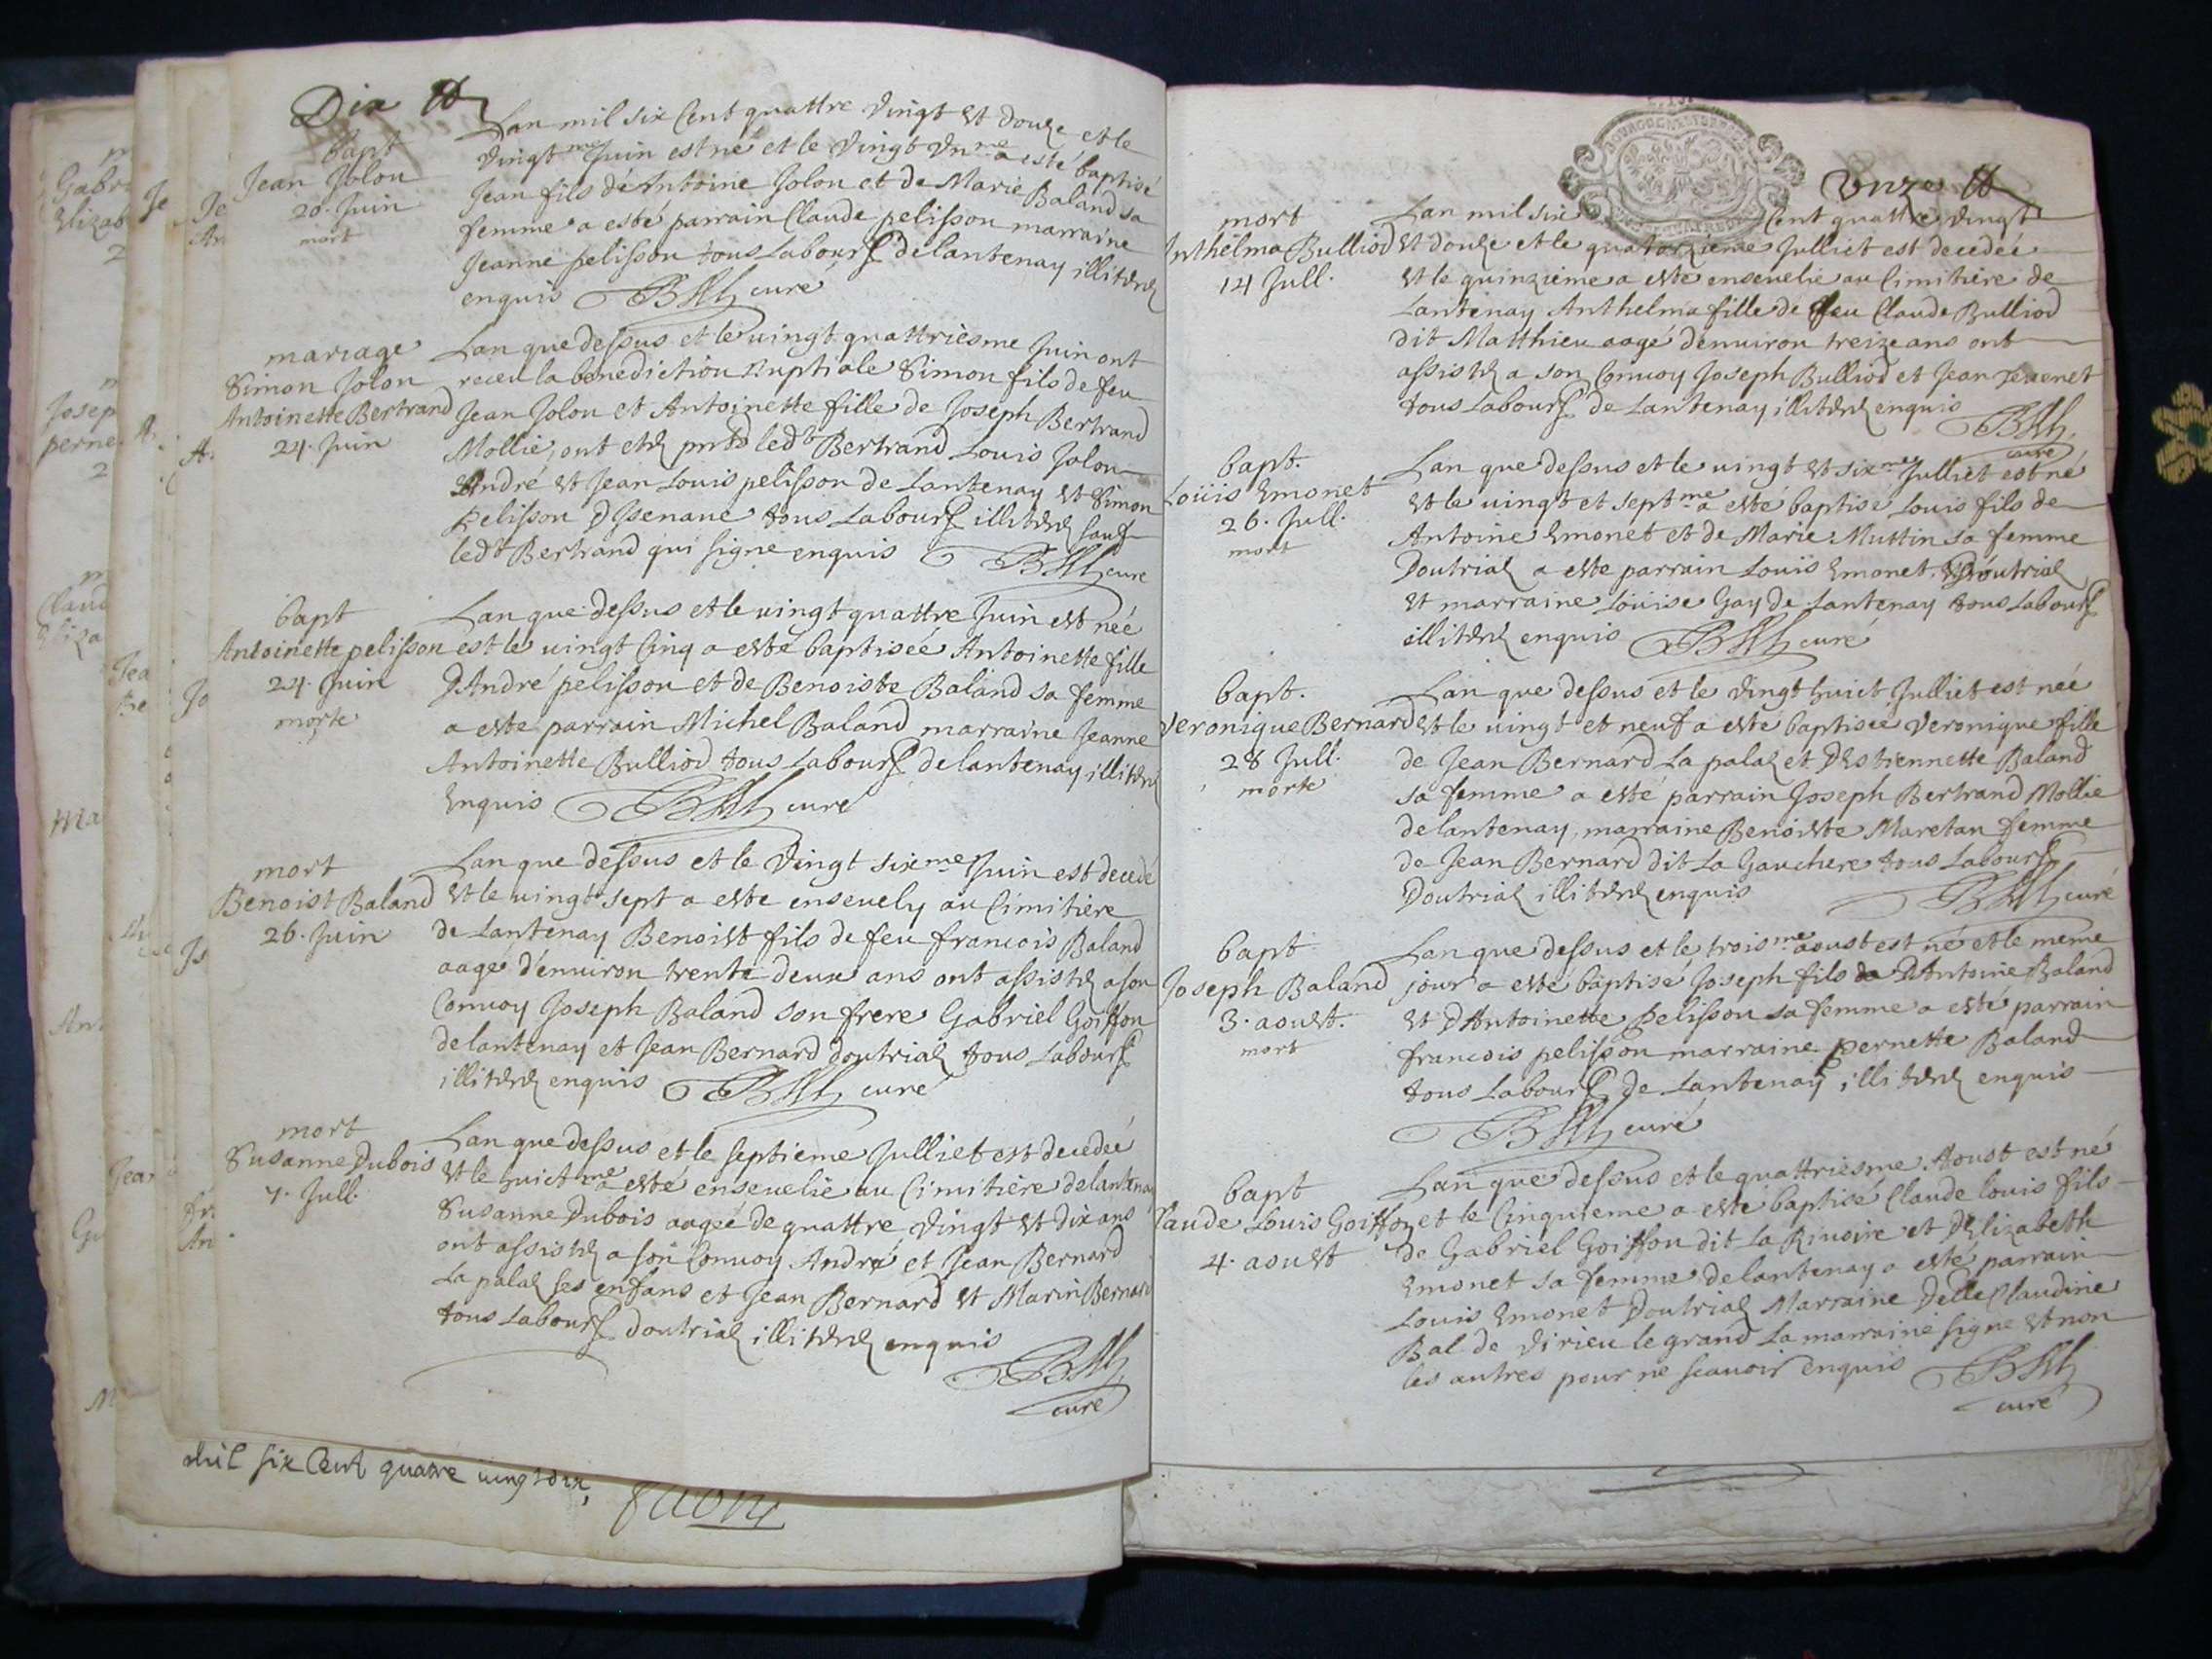 Dix
bapt
Jean Jolon
20. Juin
mort
Lan mil six Cent quattre Vingt Et douze et le
Vingt me Juin est né et le Vingt Vn me a esté baptisé
Jean fils de Antoine Jolon et de Marie Baland sa
femme a esté parrain Claude pelisson marraine
Jeanne pelisson tous Labours de lantenay illiterez
enquis curé
mariage
Simon Jolon
Antoinette Bertrand
24. Juin
Lan que dessus et le uingt quattriesme Juin ont
receu la benediction Nuptiale Simon fils de feu
Jean Jolon et Antoinette fille de Joseph Bertrand
Mollie, ont etez pnts ledt Bertrand Louis Jolon
André Et Jean Louis pelisson de Lantenay Et Simon
pelisson DIsenaue tous Labours illiterez sauf
ledt Bertrand qui signe enquis curé
bapt
Antoinette pelisson
24. Juin
morte
Lan que dessus et le uingt quattre Juin est née
est le uingt Cinq a esté baptisée Antoinette fille
DAndré pelisson et de Benoiste Baland sa femme
a esté parrain Michel Baland marraine Jeanne
Antoinette Bulliod tous Labours de lantenay illiterez
Enquis curé
mort
Benoist Baland
26. Juin
Lan que dessus et le Vingt sixme Juin est decedé
Et le uingt sept a esté enseuely au Cimitière
de Lantenay Benoist fils de feu francois Baland
aagé d'enuiron trente deux ans ont assistez a son
Conuoy Joseph Baland son frere Gabriel Goiffon
de lantenay et Jean Bernard doutriaz tous Labours
illiterez enquis curé
mort
Susanne Dubois
7. Jull.
Lan que dessus et le septieme Julliet est decedeé
Et le huictme a esté enseuelie au Cimitière de lantenay
Susanne Dubois aageé de quattre Vingt Et dix ans
ont assistez a son Conuoy André et Jean Bernard
La palaz ses enfans et Jean Bernard Et Marin Bernard
tous Labours doutriaz illiterez enquis
curé
mil six Cent quatre uingt dix,
Vnze
mort
Anthelma Bulliod
14 Jull.
Lan mil six Cent quattre Vingt
Et douze et le quatorzieme Julliet est decedeé
Et le quinzieme a esté enseuelie au Cimitière de
Lantenay Anthelma fille de feu Claude Bulliod
dit Matthieu aagé d'enuiron treize ans ont
assistez a son Conuoy Joseph Bulliod et Jean Teuenet
tous Labours de Lantenay illiterez enquis
curé
bapt.
Loüis Emonet
26. Jull.
mort
Lan que dessus et le uingt et sixme Julliet est né
Et le uingt et septme a esté baptisé Louis fils de
Antoine Emonet et de Marie Muttin sa femme
Doutriaz a este parrain Louis Emonet Doutriaz
Et marraine Loüise Gay de Lantenay tous Labours
illiterez enquis curé
bapt.
Veronique Bernard
28 Jull.
morte
Lan que dessus et le Vingt huict Julliet est neé
Et le uingt et neuf a esté baptiseé Veronique fille
de Jean Bernard La palaz et DEstiennette Baland
sa femme a esté parrain Joseph Bertrand Mollie
de lantenay, marraine Benoiste Maretan femme
de Jean Bernard dit La Gauchere tous Labours
Doutriaz illiterez enquis curé
bapt
Joseph Baland
3. aoust.
mort
Lan que dessus et le troisme aoust est né et le meme
jour a esté baptisé Joseph fils de DAntoine Baland
Et DAntoinette pelisson sa femme a esté parrain
francois pelisson marraine pernette Baland
tous Labours de Lantenay illiterez enquis
curé
bapt
Claude Louis Goiffon
4. aoust
Lan que dessus et le quattriesme Aoust est né
et le Cinquieme a esté baptisé Claude louis fils
de Gabriel Goiffon dit La Riuoire et DElizabeth
Emonet sa femme de lantenay a esté parrain
Louis Emonet Doutriaz Marraine Delle Claudine
Bal de Virieu le grand La marraine signe Et non
les autres pour ne scauoir enquis
curé